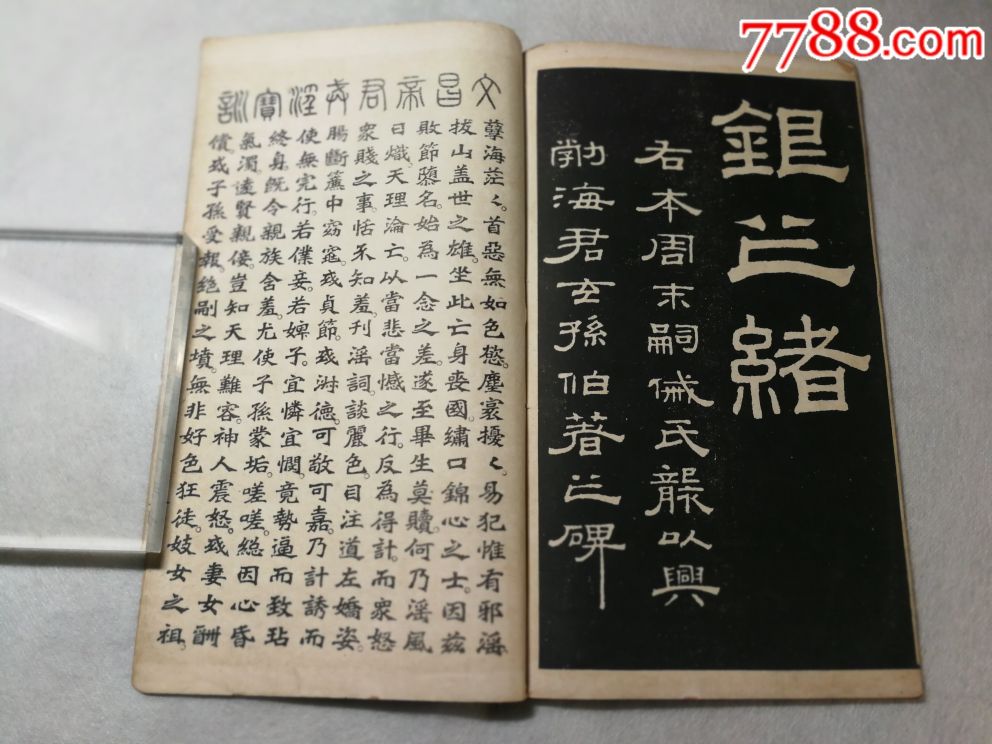 7788.com
銀之緒
右本周末嗣氏龔以興
勃海君玄孫伯著之碑
文昌帝君戒淫寶訓
孽海茫々。首惡無如色慾。塵寰擾々。易犯惟有邪淫。
拔山盖世之雄。坐此亡身喪國。繡口錦心之士。因茲
敗節隳名。始為一念之差。遂至畢生莫贖。何乃淫風
日熾。天理淪亡。以當悲當憾之行。反為得計。而衆怒
衆賤之事。恬不知羞。刊淫詞。談麗色。目注道左嬌姿。
腸斷簾中窈窕。或貞節。或淑德。可敬可嘉。乃計誘而
使無完行。若僕妾。若婢子。宜憐宜憫。竟勢逼而致玷
終身。既令親族含羞。尤使子孫蒙垢。嗟嗟。總因心昏
氣濁。遠賢親佞。豈知天理難容。神人震怒。或妻女酬
償。或子孫受報。絕嗣之墳。無非好色狂徒。妓女之祖。